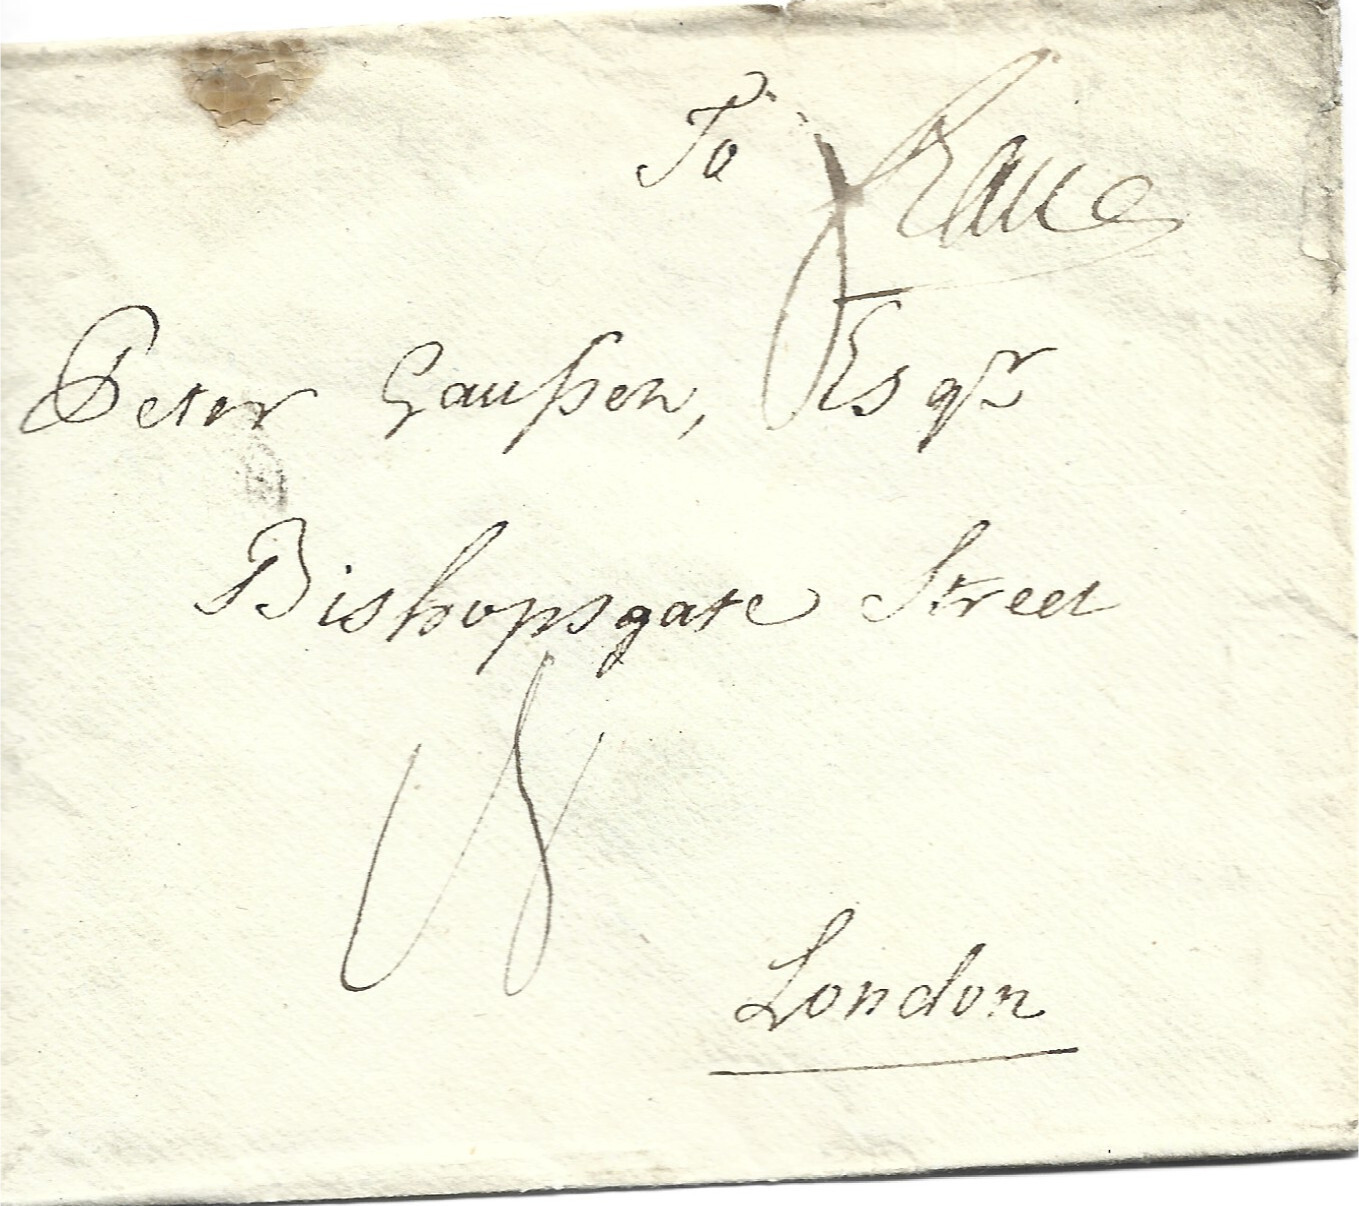 To
Peter Gauſsen, Esqr
Bishopsgate Street
London